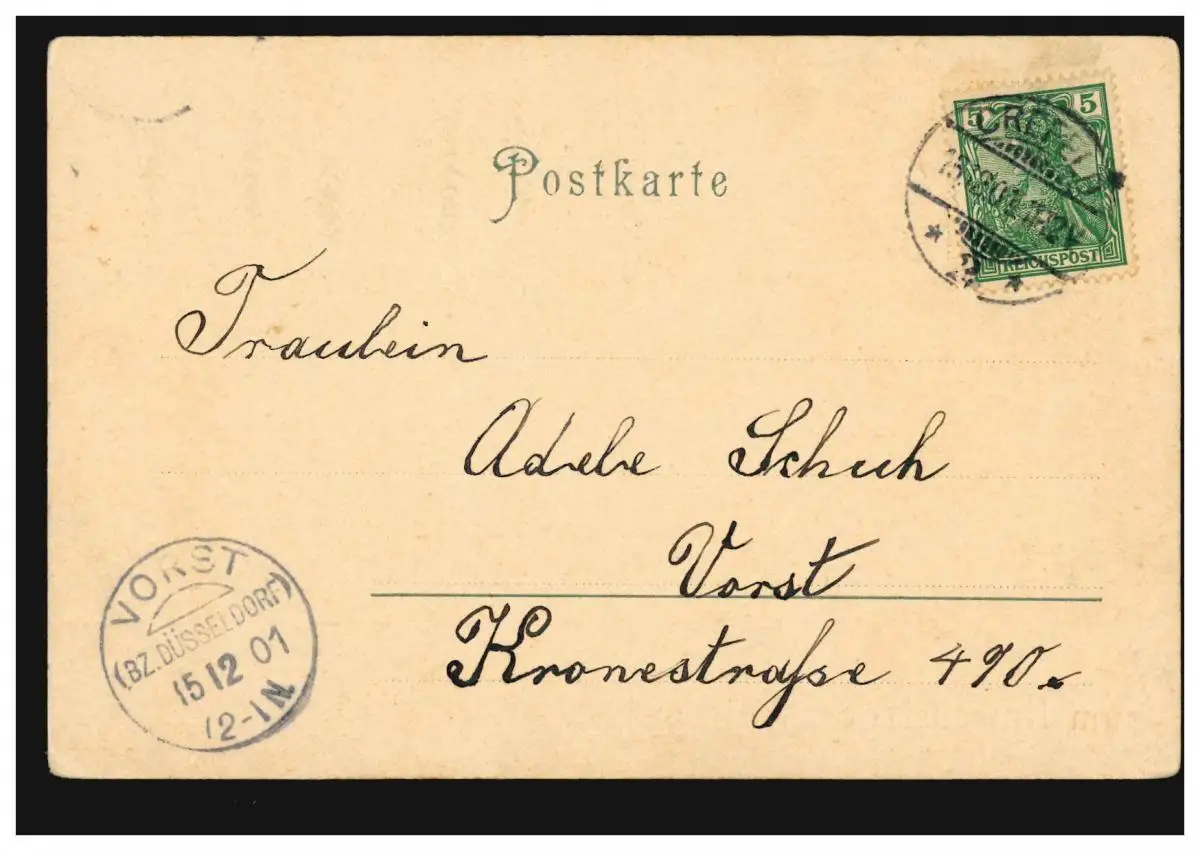 Postkarte
5 5
REICHSPOST
CREFELD
2
Fraulein
Adele Schuh
Vorst
Kronestraſse 490
VORST
(BZ. DÜSSELDORF)
15 12 01
12-1N